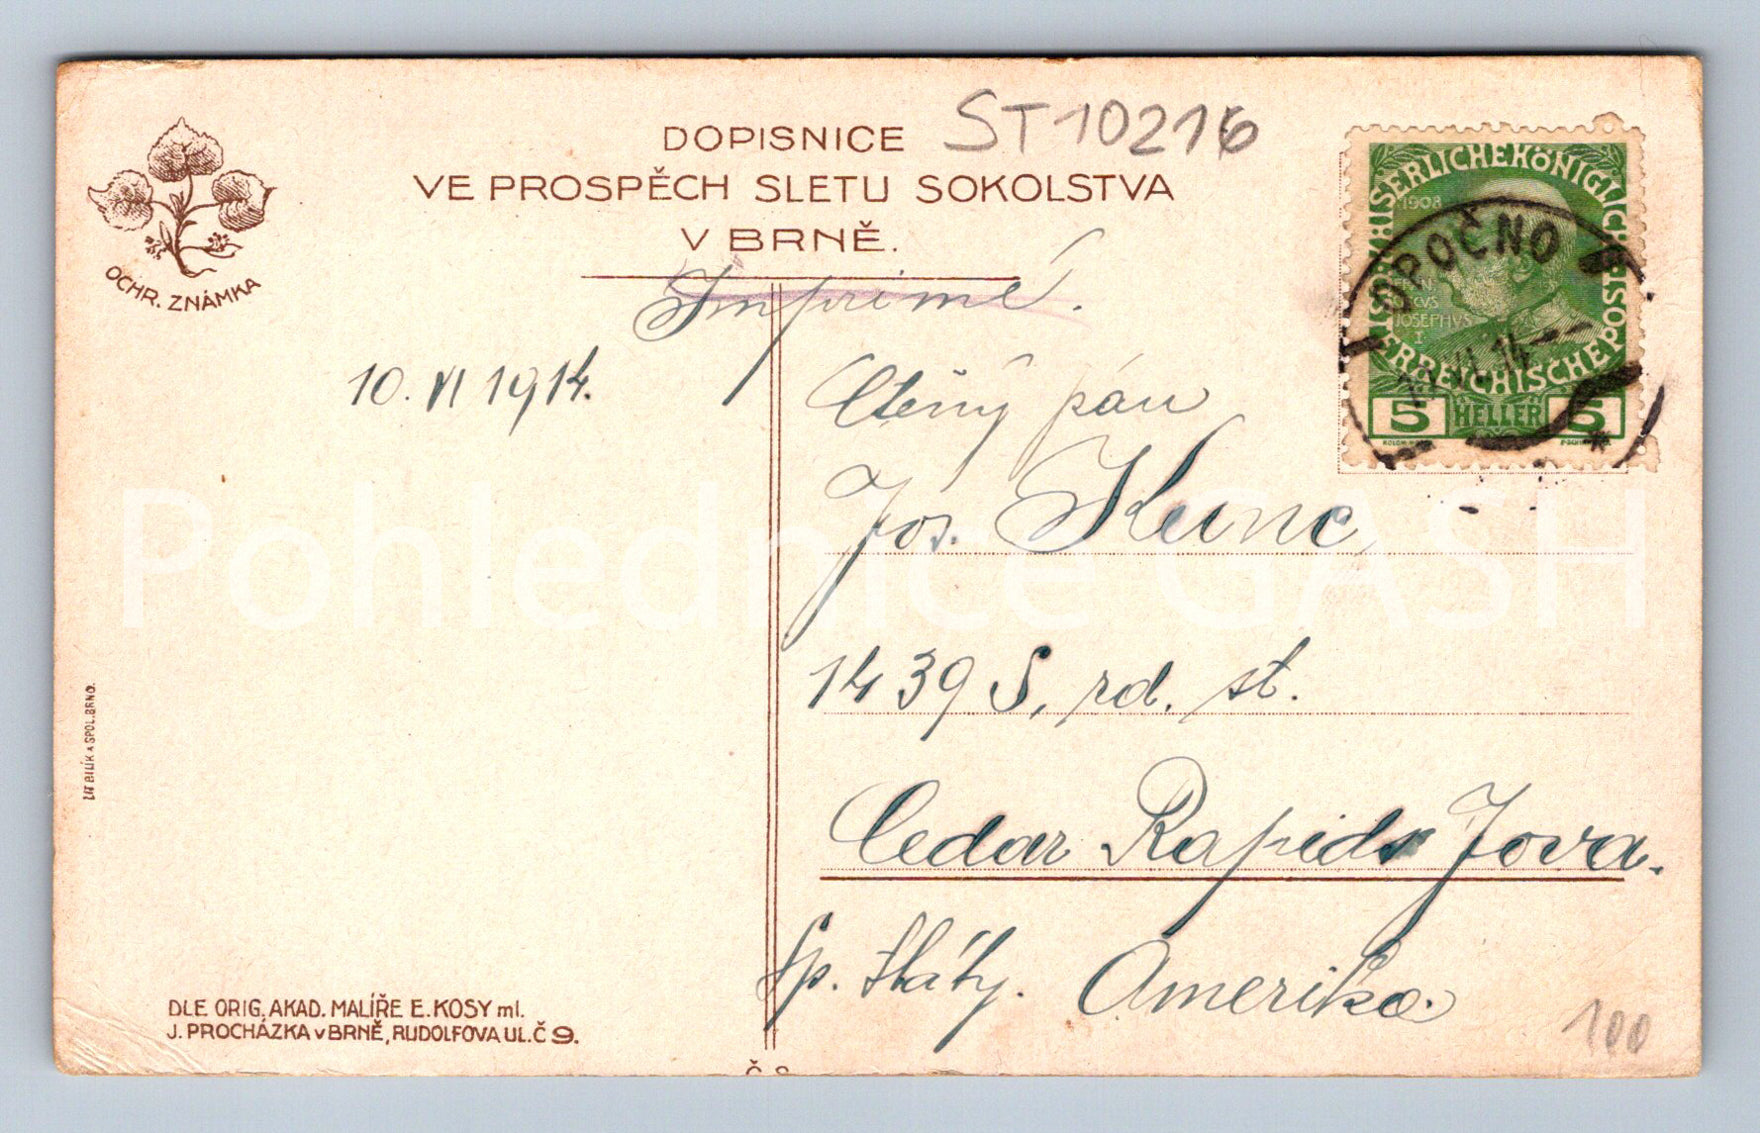 DOPISNICE
VE PROSPĚCH SLETU SOKOLSTVA
V BRNĚ.
ST10216
OCHR. ZNÁMKA
Imprimé.
KAISERLICHE KÖNIGLICHE
ÖSTERREICHISCHE POST
1908
JOSEPHVS
I
5 HELLER 5
OPOČNO
VI.14
10. VI 1914.
Ctěný pán
Jos. Kunc
1439 S, rd. st.
Cedar Rapids Jova.
Sp. Státy. Amerika.
Pohlednice GASH
LIT BILÍK A SPOL. BRNO.
DLE ORIG. AKAD. MALÍŘE E. KOSY ml.
J. PROCHÁZKA v BRNĚ, RUDOLFOVA UL. Č 9.
100